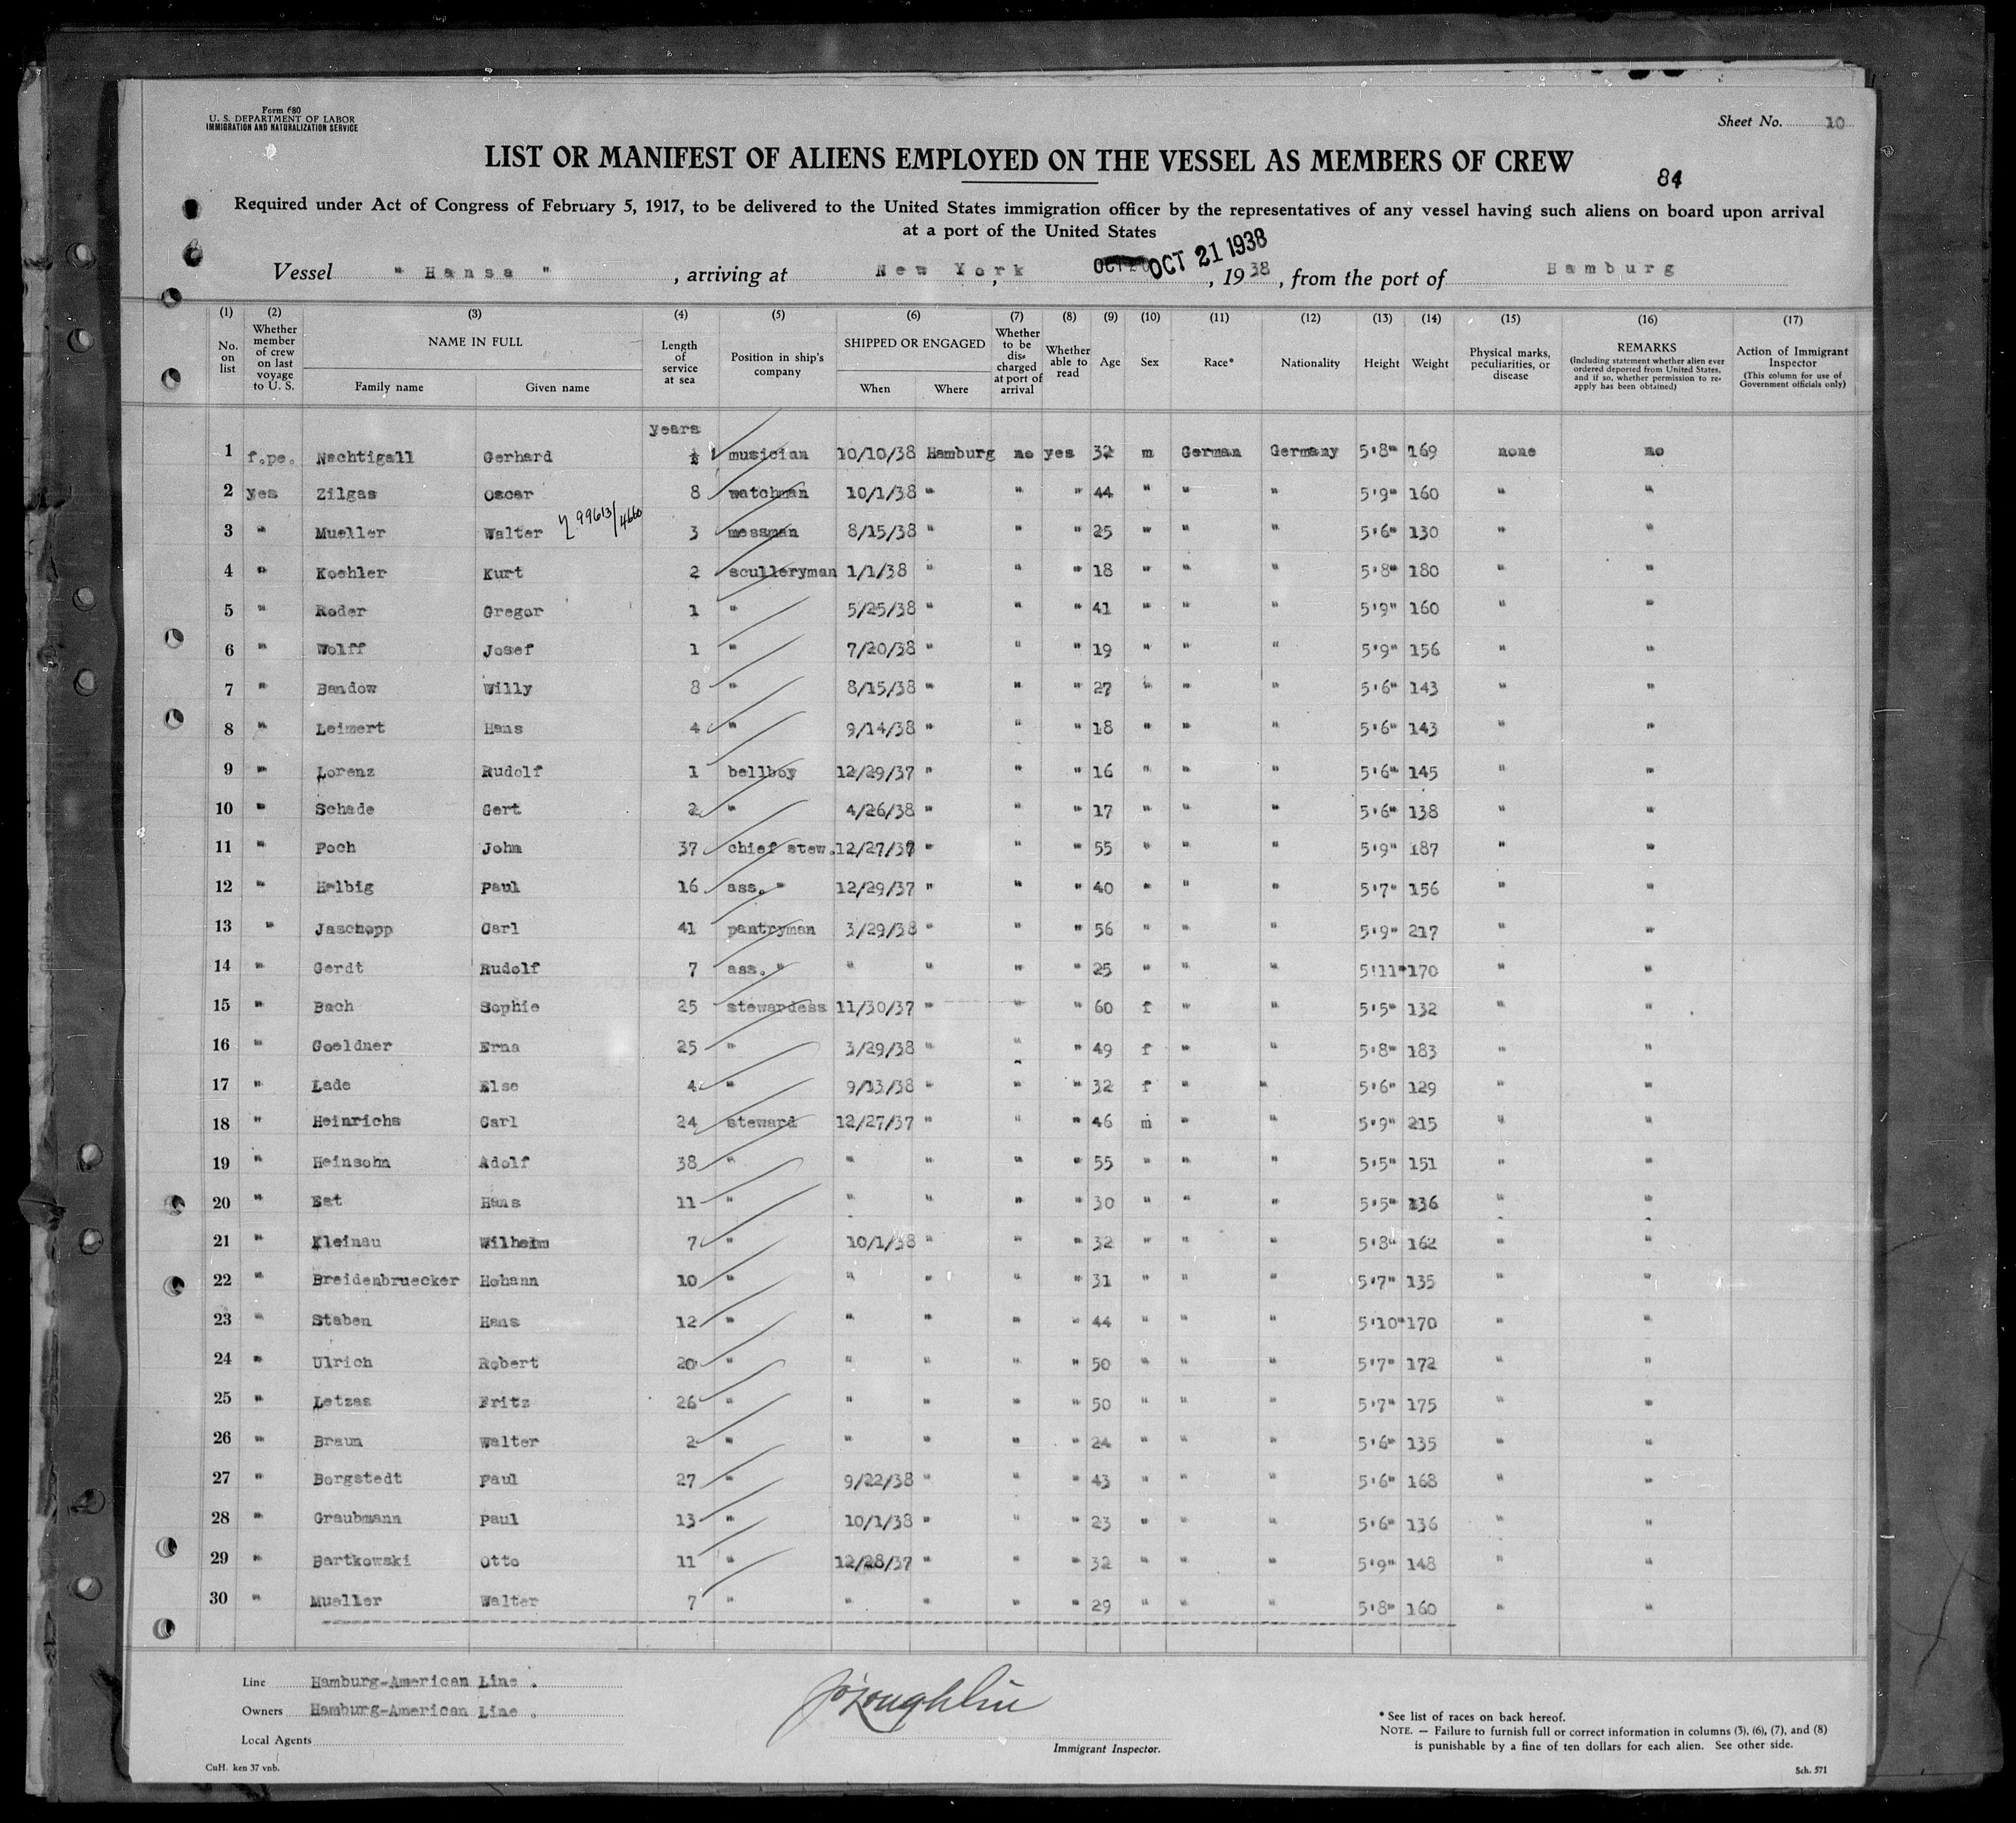 Form 680
U. S. DEPARTMENT OF LABOR
IMMIGRATION AND NATURALIZATION SERVICE
Sheet No. 10
LIST OR MANIFEST OF ALIENS EMPLOYED ON THE VESSEL AS MEMBERS OF CREW
84
Required under Act of Congress of February 5, 1917, to be delivered to the United States immigration officer by the representatives of any vessel having such aliens on board upon arrival
at a port of the United States
OCT 21 1938
Vessel " Hansa " , arriving at New York , , 1938 , from the port of Hamburg
(1) (2) (3) (4) (5) (6) (7) (8) (9) (10) (11) (12) (13) (14) (15) (16) (17)
No. on list Whether member of crew on last voyage to U. S. NAME IN FULL Family name Given name Length of service at sea Position in ship's company SHIPPED OR ENGAGED When Where Whether to be discharged at port of arrival Whether able to read Age Sex Race* Nationality Height Weight Physical marks, peculiarities, or disease REMARKS (Including statement whether alien ever ordered deported from United States, and if so, whether permission to re-apply has been obtained) Action of Immigrant Inspector (This column for use of Government officials only)
years
1 f.pe. Nachtigall Gerhard ½ musician 10/10/38 Hamburg no yes 32 m German Germany 5'8" 169 none no
2 yes Zilgas Oscar 8 watchman 10/1/38 " " " 44 " " " 5'9" 160 " "
3 " Mueller Walter 99613/4660 3 messman 8/15/38 " " " 25 " " " 5'6" 130 " "
4 " Koehler Kurt 2 sculleryman 1/1/38 " " " 18 " " " 5'8" 180 " "
5 " Roder Gregor 1 " 5/25/38 " " " 41 " " " 5'9" 160 " "
6 " Wolff Josef 1 " 7/20/38 " " " 19 " " " 5'9" 156 " "
7 " Bandow Willy 8 " 8/15/38 " " " 27 " " " 5'6" 143 " "
8 " Leimert Hans 4 " 9/14/38 " " " 18 " " " 5'6" 143 " "
9 " Lorenz Rudolf 1 bellboy 12/29/37 " " " 16 " " " 5'6" 145 " "
10 " Schade Gert 2 " 4/26/38 " " " 17 " " " 5'6" 138 " "
11 " Poch John 37 chief stew. 12/27/37 " " " 55 " " " 5'9" 187 " "
12 " Helbig Paul 16 ass. " 12/29/37 " " " 40 " " " 5'7" 156 " "
13 " Jaschopp Carl 41 pantryman 3/29/38 " " " 56 " " " 5'9" 217 " "
14 " Gerdt Rudolf 7 ass. " " " " " 25 " " " 5'11" 170 " "
15 " Bach Sophie 25 stewardess 11/30/37 " " " 60 f " " 5'5" 132 " "
16 " Goeldner Erna 25 " 3/29/38 " " " 49 f " " 5'8" 183 " "
17 " Lade Else 4 " 9/13/38 " " " 32 f " " 5'6" 129 " "
18 " Heinrichs Carl 24 steward 12/27/37 " " " 46 m " " 5'9" 215 " "
19 " Heinsohn Adolf 38 " " " " " 55 " " " 5'5" 151 " "
20 " Est Hans 11 " " " " " 30 " " " 5'5" 136 " "
21 " Kleinau Wilhelm 7 " 10/1/38 " " " 32 " " " 5'8" 162 " "
22 " Breidenbruecker Hohann 10 " " " " " 31 " " " 5'7" 135 " "
23 " Staben Hans 12 " " " " " 44 " " " 5'10" 170 " "
24 " Ulrich Robert 20 " " " " " 50 " " " 5'7" 172 " "
25 " Letzas Fritz 26 " " " " " 50 " " " 5'7" 175 " "
26 " Braun Walter 2 " " " " " 24 " " " 5'6" 135 " "
27 " Borgstedt Paul 27 " 9/22/38 " " " 43 " " " 5'6" 168 " "
28 " Graubmann Paul 13 " 10/1/38 " " " 23 " " " 5'6" 136 " "
29 " Bartkowski Otto 11 " 12/28/37 " " " 32 " " " 5'9" 148 " "
30 " Mueller Walter 7 " " " " " 29 " " " 5'8" 160 " "
Line Hamburg-American Line .
Owners Hamburg-American Line .
Local Agents
J O'Loughlin
Immigrant Inspector.
* See list of races on back hereof.
NOTE. — Failure to furnish full or correct information in columns (3), (6), (7), and (8)
is punishable by a fine of ten dollars for each alien. See other side.
CuH. ken 37 vnb.
Sch. 571